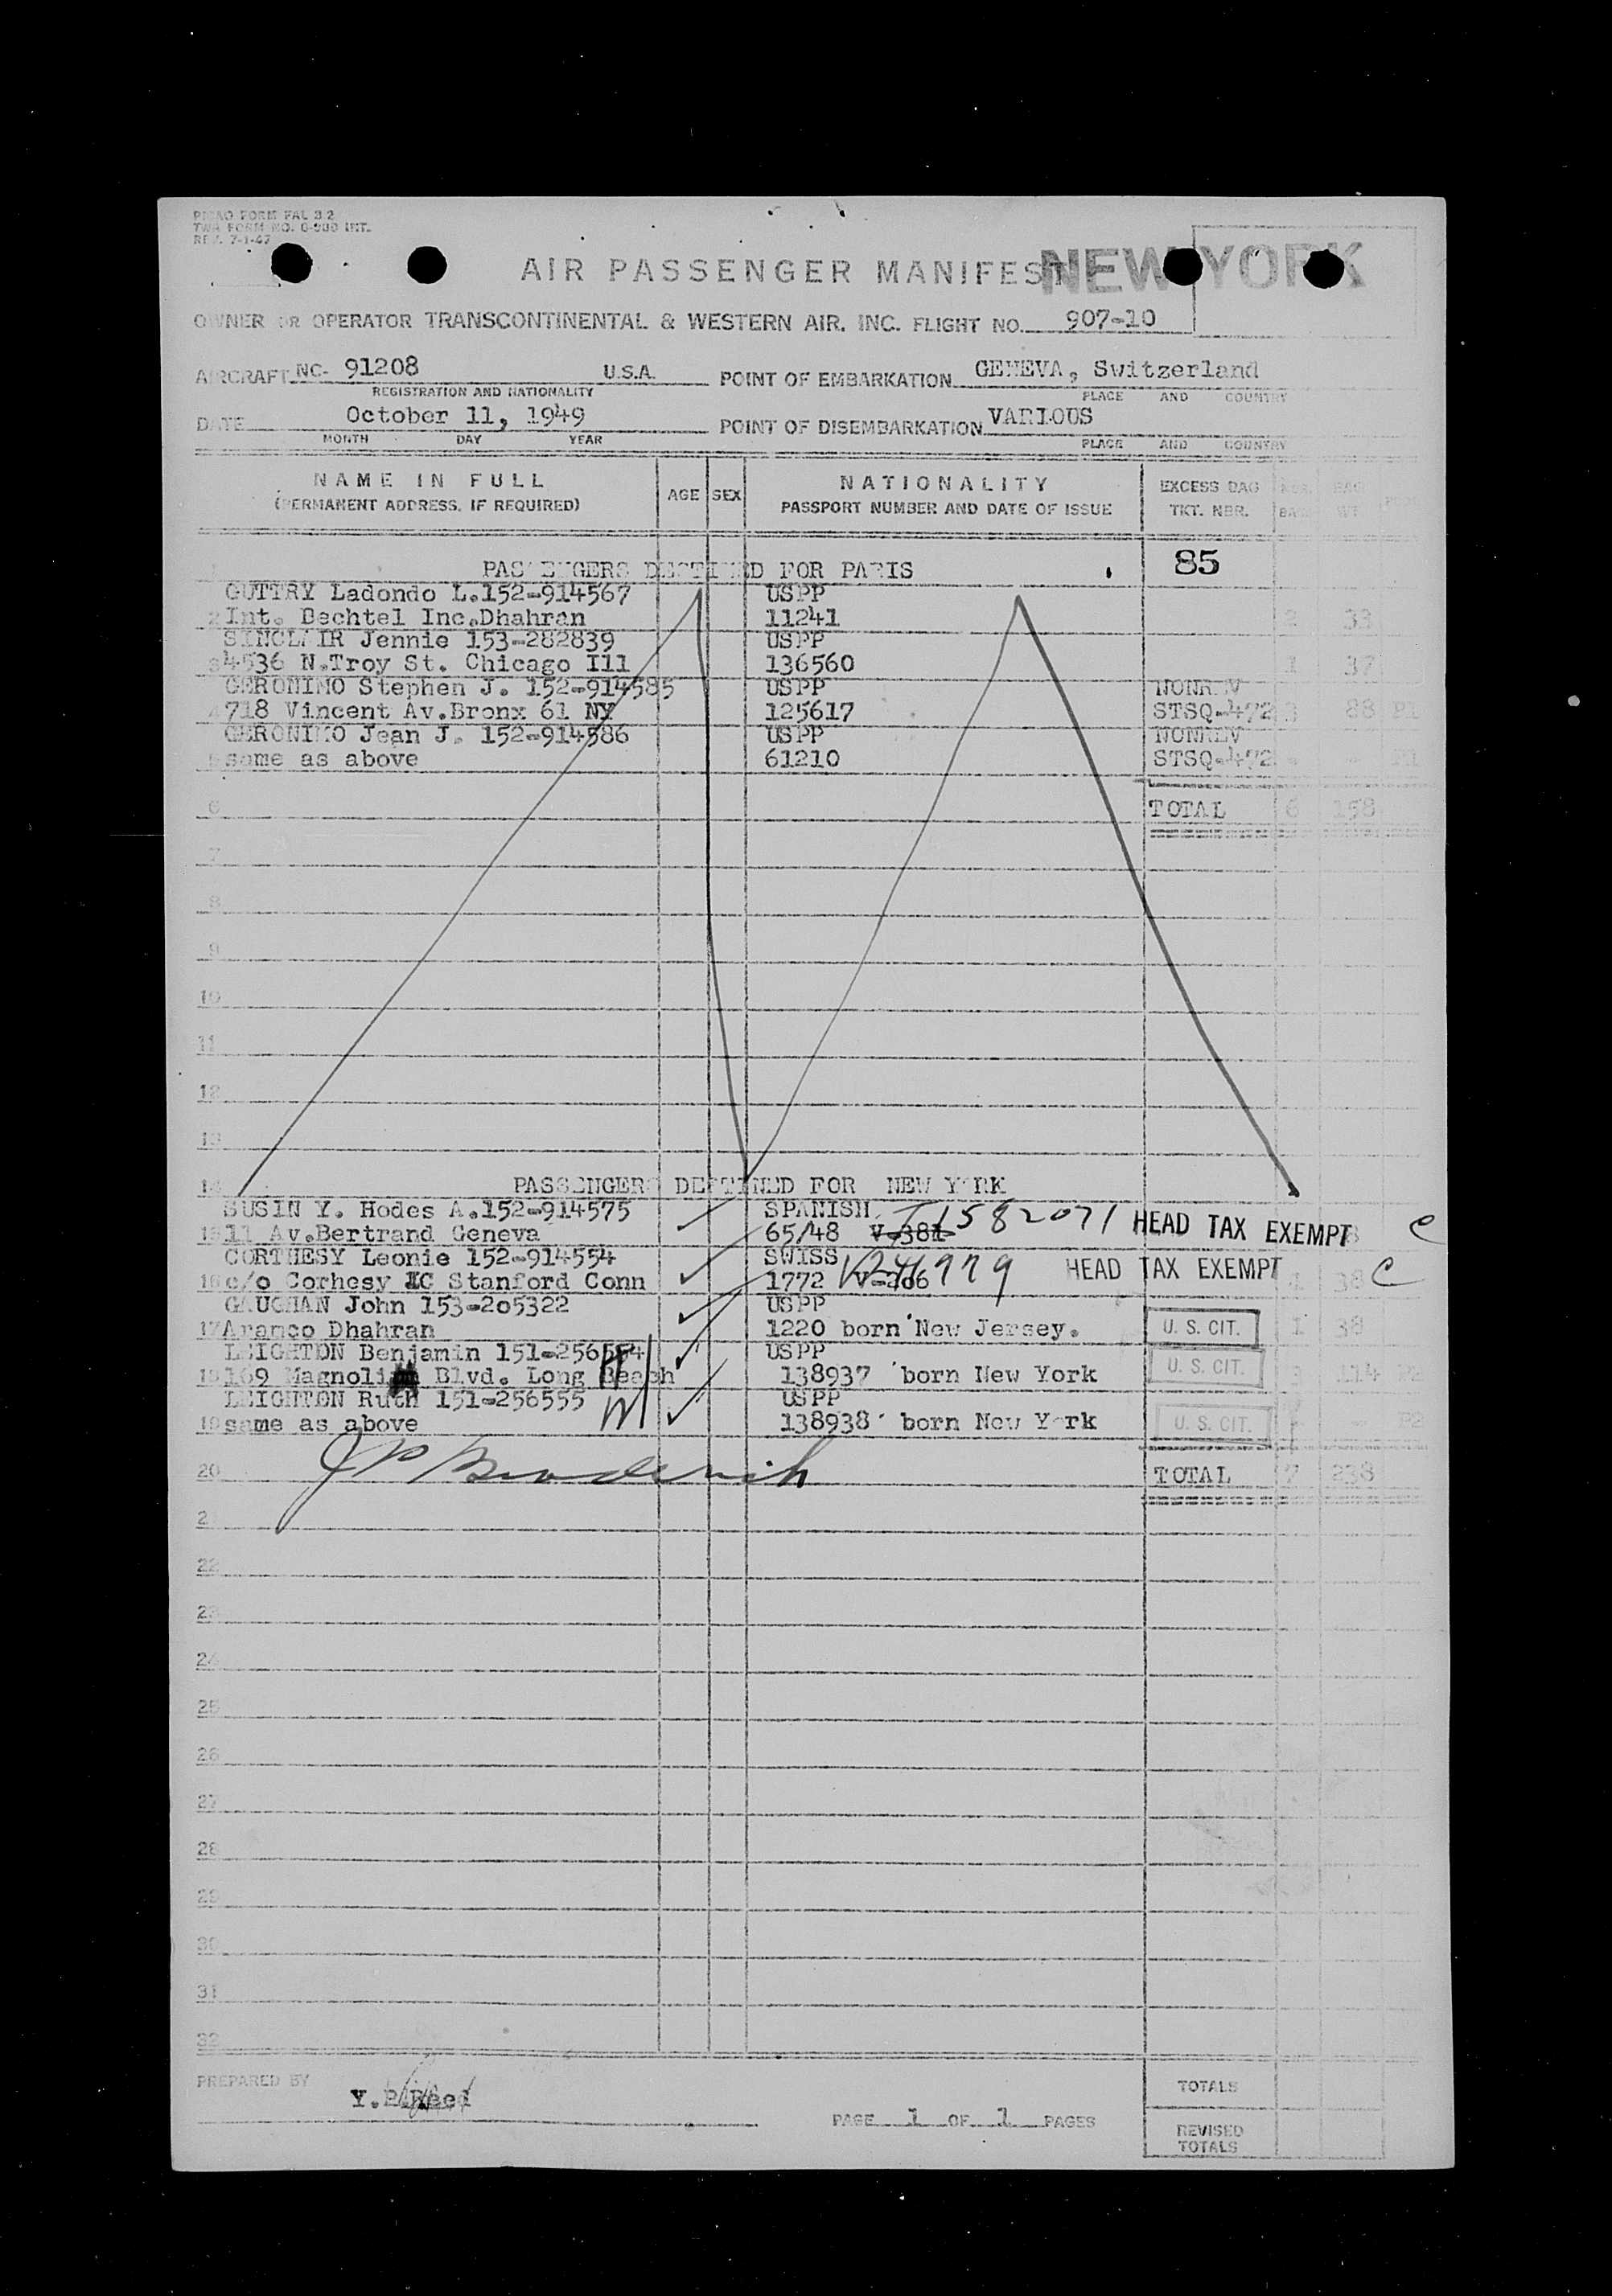 PICAO FORM FAL 3.2
TWA FORM NO. 0-900 INT.
REV. 7-1-47
AIR PASSENGER MANIFEST
NEW YORK
OWNER OR OPERATOR TRANSCONTINENTAL & WESTERN AIR. INC. FLIGHT NO. 907-10
AIRCRAFT NC- 91208 U.S.A. POINT OF EMBARKATION GENEVA, Switzerland
REGISTRATION AND NATIONALITY PLACE AND COUNTRY
DATE October 11, 1949 POINT OF DISEMBARKATION VARIOUS
MONTH DAY YEAR PLACE AND COUNTRY
NAME IN FULL AGE SEX NATIONALITY EXCESS BAG
(PERMANENT ADDRESS, IF REQUIRED) PASSPORT NUMBER AND DATE OF ISSUE TKT. NBR.
85
PASSENGERS DESTINED FOR PARIS
GUTTRY Ladondo L.152-914567 USPP
2 Int. Bechtel Inc.Dhahran 11241 2 33
SINCLAIR Jennie 153-282839 USPP
3 4536 N.Troy St. Chicago Ill 136560 1 37
GERONIMO Stephen J. 152-914585 USPP NONREV
4 718 Vincent Av.Bronx 61 NY 125617 STSQ-472 3 88 P1
GERONIMO Jean J. 152-914586 USPP NONREV
5 same as above 61210 STSQ-472 - - P1
6 TOTAL 6 158
7
8
9
10
11
12
13
14 PASSENGERS DESTINED FOR NEW YORK
SUSIN Y. Hodes A.152-914575 SPANISH T1582071 HEAD TAX EXEMPT C
15 11 Av.Bertrand Geneva 65/48 V-381
CORTHESY Leonie 152-914554 SWISS HEAD TAX EXEMPT C
16 c/o Corhesy C Stanford Conn 1772 V-206 1 38
GAUGHAN John 153-205322 USPP
17 Aramco Dhahran 1220 born New Jersey. U. S. CIT. 1 38
LEIGHTON Benjamin 151-256554 USPP
18 169 Magnolia Blvd. Long Beach 138937 born New York U. S. CIT. 3 114 P2
LEIGHTON Ruth 151-256555 USPP
19 same as above 138938 born New York U. S. CIT. - - P2
20 TOTAL 7 238
21
22
23
24
25
26
27
28
29
30
31
32
PREPARED BY
Y. Reed
PAGE 1 OF 1 PAGES
TOTALS
REVISED
TOTALS